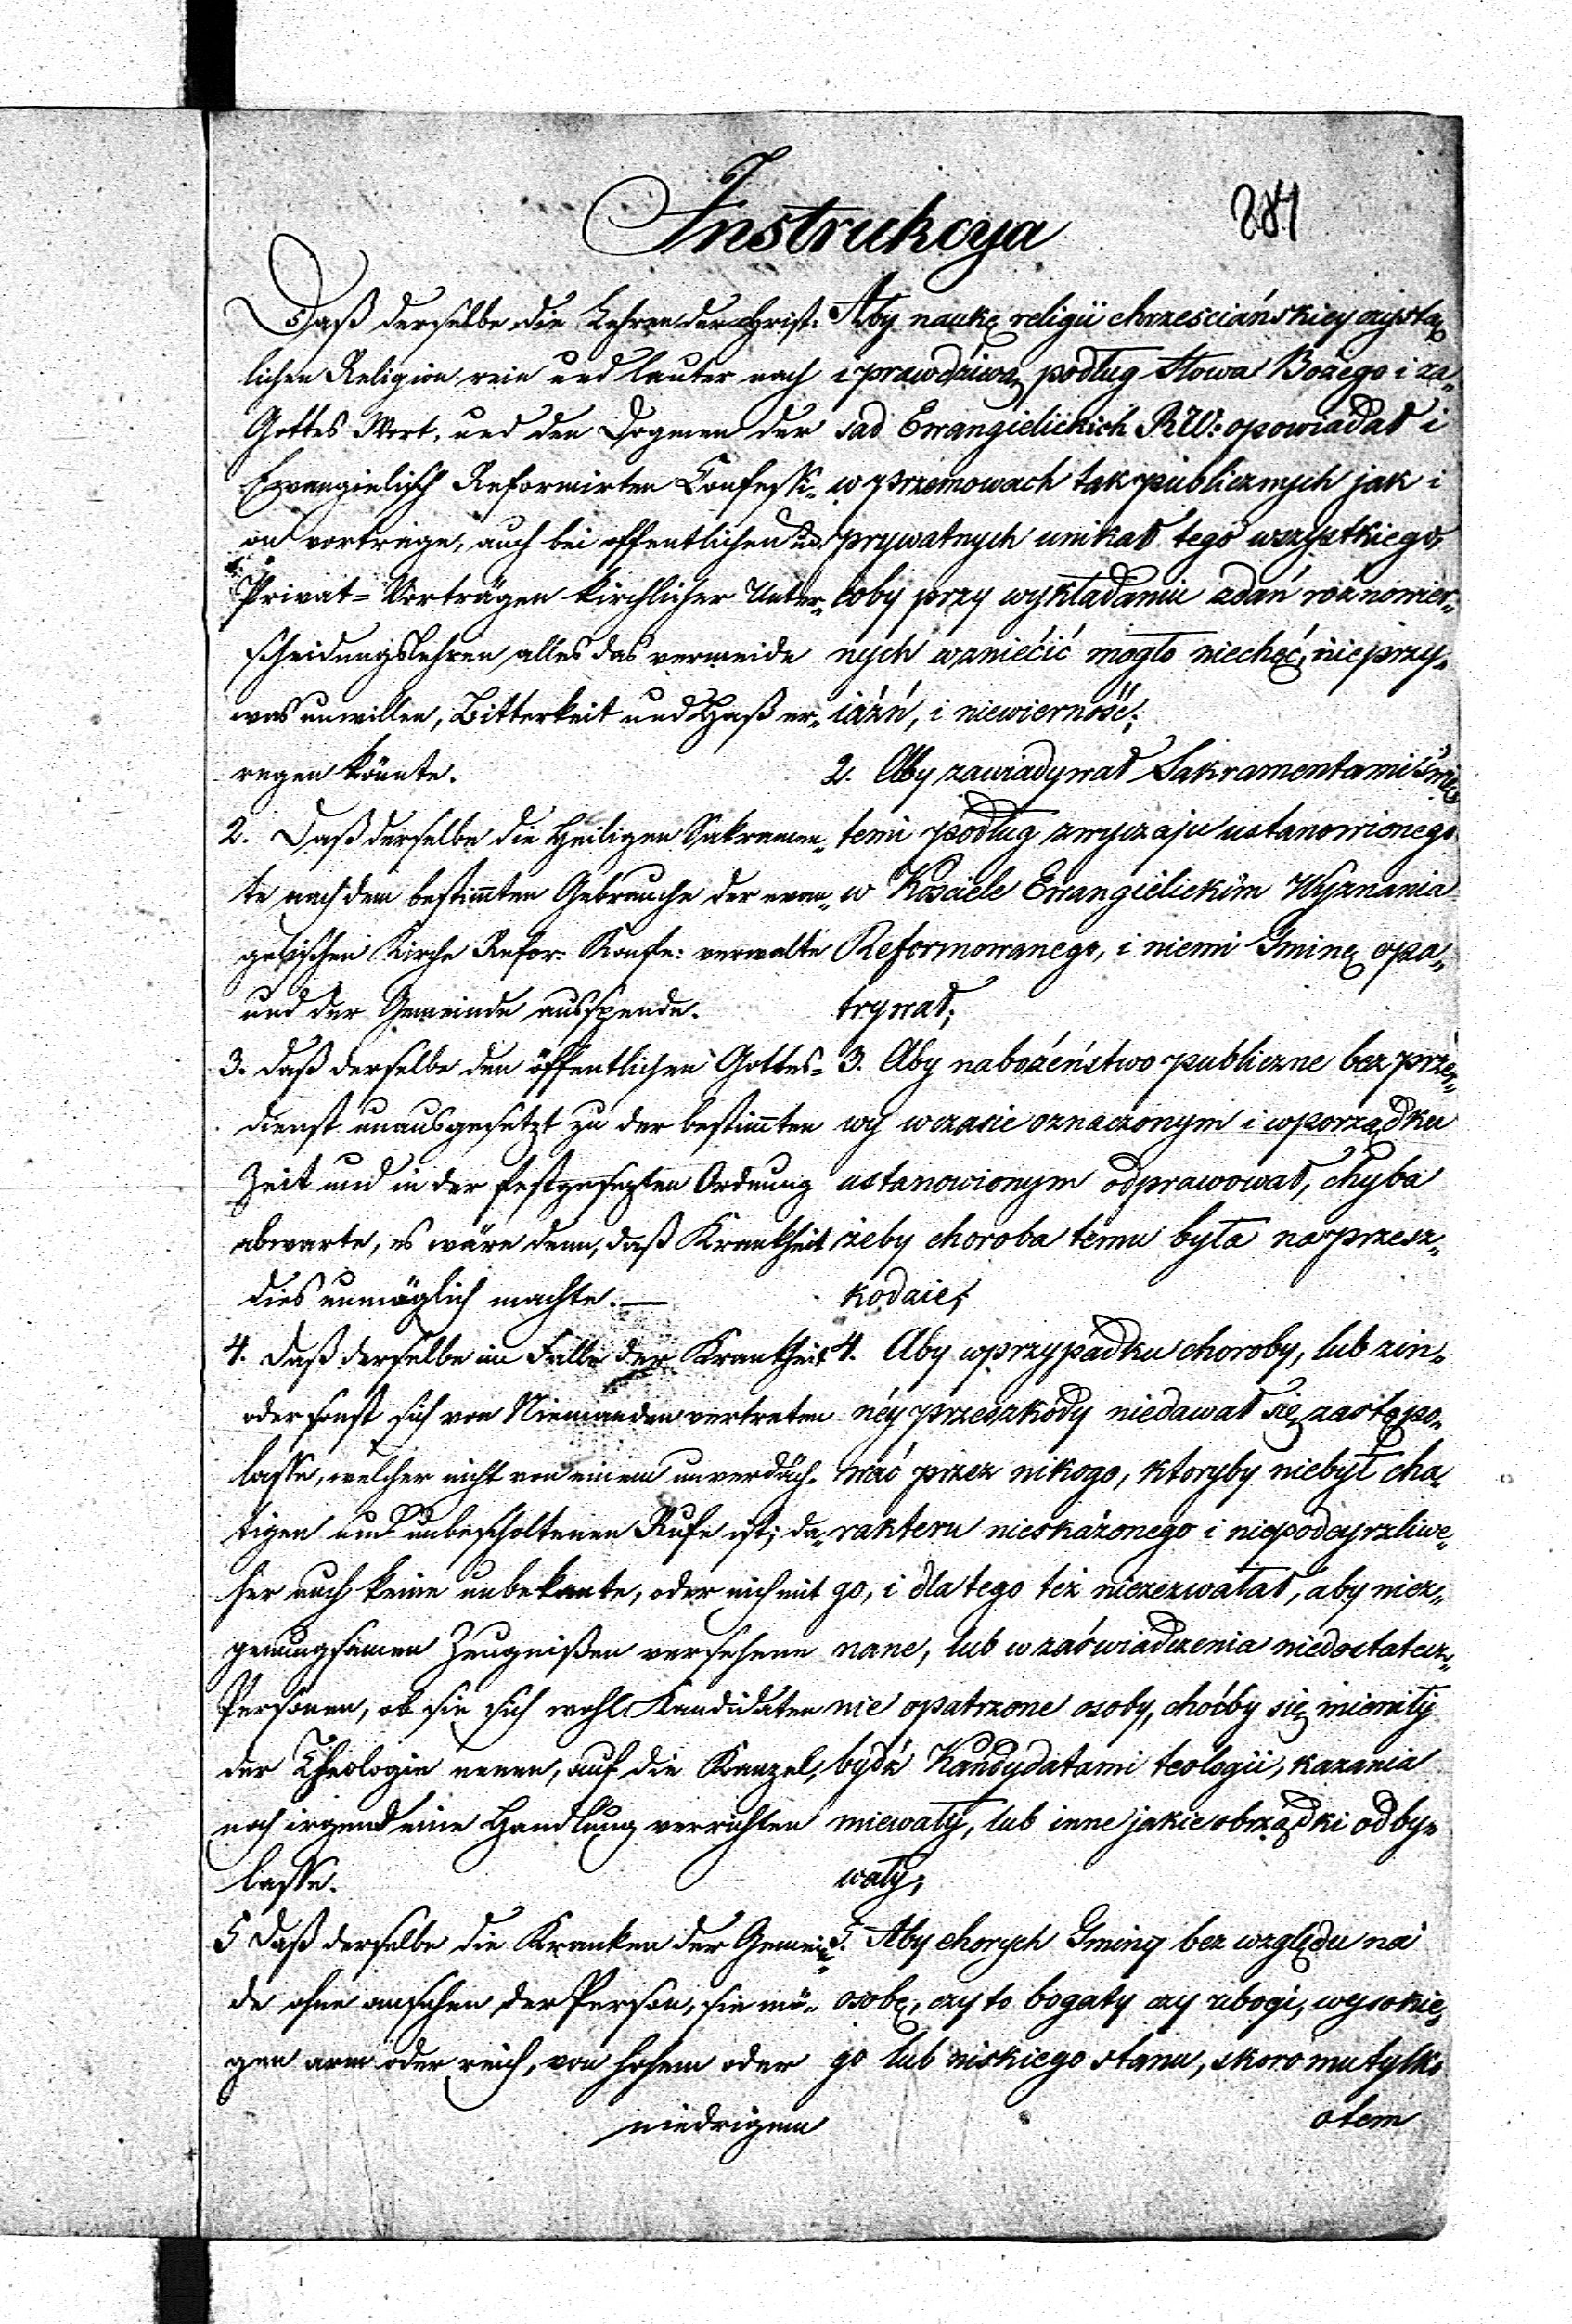 Instrukcya
281
Daß derselbe die Lehren der Christ-
lichen Religion rein und lauter nach
Gottes Wort, und den Dogmen der
Evangielisch Reformirten Confessi-
on vortrage, auch bei offentlichen und
Privat-Vorträgen kirchlicher Unter-
scheidungslehren alles das vermeide
was unwillen, Bitterkeit und Haß er-
regen könnte.
2. Daß derselbe die Heiligen Sakramen-
te nach dem bestimten Gebrauche der evan-
gelischen Kirche Refor: Konfe: verwalte
und der Gemeinde ausspende.
3. daß derselbe den öffentlichen Gottes-
dienst unausgesetzt zu der bestimten
Zeit und in der festgesezten Ordnung
abwarte, es wäre denn, daß Krankheit
dies unmöglich machte. —
4. daß derselbe im Falle der Krankheit
oder sonst sich von Niemanden vertreten
lasse, welcher nicht von einem unverdäch-
tigen und unbescholtenen Rufe ist; da-
her auch keine unbekante, oder nich mit
genungsamen Zeugnißen versehene
Personen, ob sie sich wohl Kandidaten
der Theologie nenen, auf die Kanzel,
noch irgend eine Handlung verrichten
lasse.
5 daß derselbe die Kranken der Gemein-
de ohne ansehen der Person, sie mö-
gen arm oder reich, von hohem oder
niedrigem
Aby naukę religii chrześciańskiey czystą
i prawdziwą podług Słowa Bożego i za-
sad Ewangielickich RW: opowiadał i
w przemowach tak publicznych jak i
prywatnych unikał tego wszystkiego,
coby przy wykładaniu zdań roznowier-
nych wzniécić mogło niechęć, nieprzy-
iaźń, i niewierność;
2. Aby zawiadywał Sakramentami Swię-
temi podług zwyczaju ustanowionego
w Kosciele Ewangielickim Wyznania
Reformowanego, i niemi Gminę opa-
trywał;
3. Aby nabożeństwo publiczne bez przer-
wy wczasie oznaczonym i wporządku
ustanowionym odprawował, chyba
żeby choroba temu była na przesz-
kodzie;
4. Aby wprzypadku choroby, lub zin-
néy przeszkody niedawał się zastępo-
wać przez nikogo, ktoryby niebył cha-
rakteru nieskażonego i niepodeyrzliwe-
go, i dla tego też niezezwalał, aby niez-
nane, lub w zaświadczenia niedostatecz-
nie opatrzone osoby, choćby się mieniły
bydź Kandydatami teologii, kazania
miewały, lub inne jakie obrządki odby-
wały;
5. Aby chorych Gminy bez względu na
osobę, czy to bogaty czy ubogi, wysokie-
go lub niskiego stanu, skoro mu tylko
otem